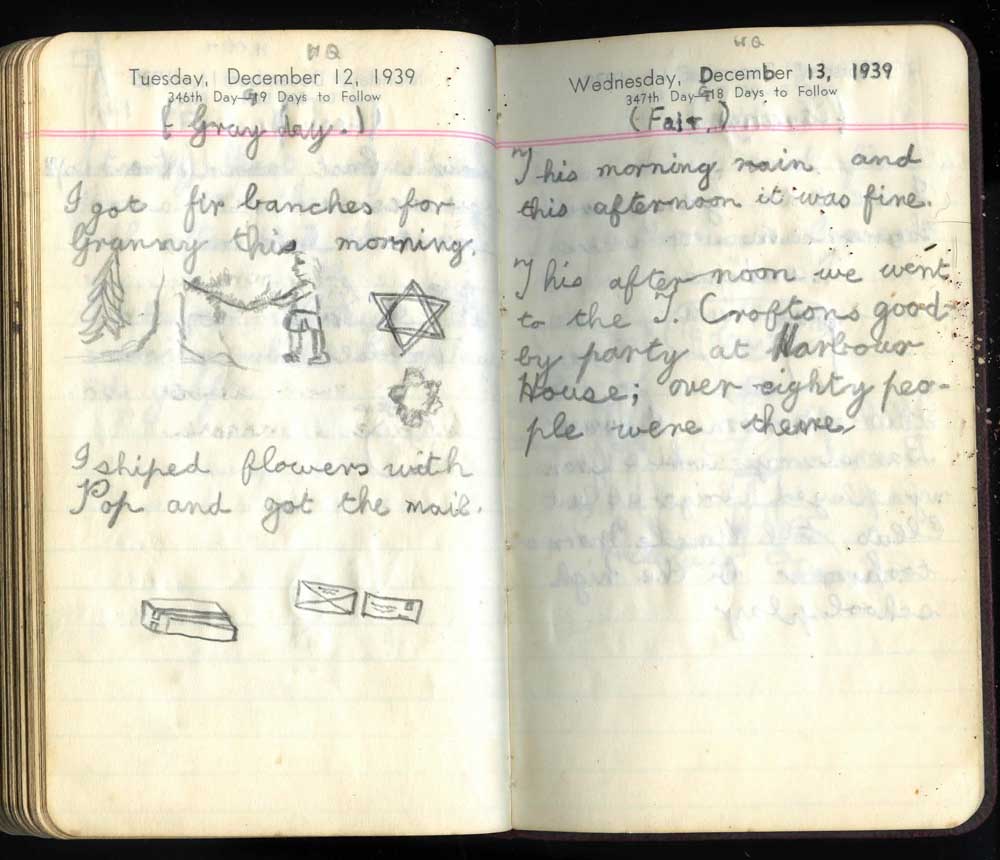 HQ
Tuesday, December 12, 1939
346th Day—19 Days to Follow
(Gray day.)
I got fir banches for
Granny this morning.
I shiped flowers with
Pop and got the mail.
HQ
Wednesday, December 13, 1939
347th Day—18 Days to Follow
(Fair.)
This morning rain and
this afternoon it was fine.
This after noon we went
to the T. Croftons good-
by party at Harbour
House; over eighty peo-
ple were there.